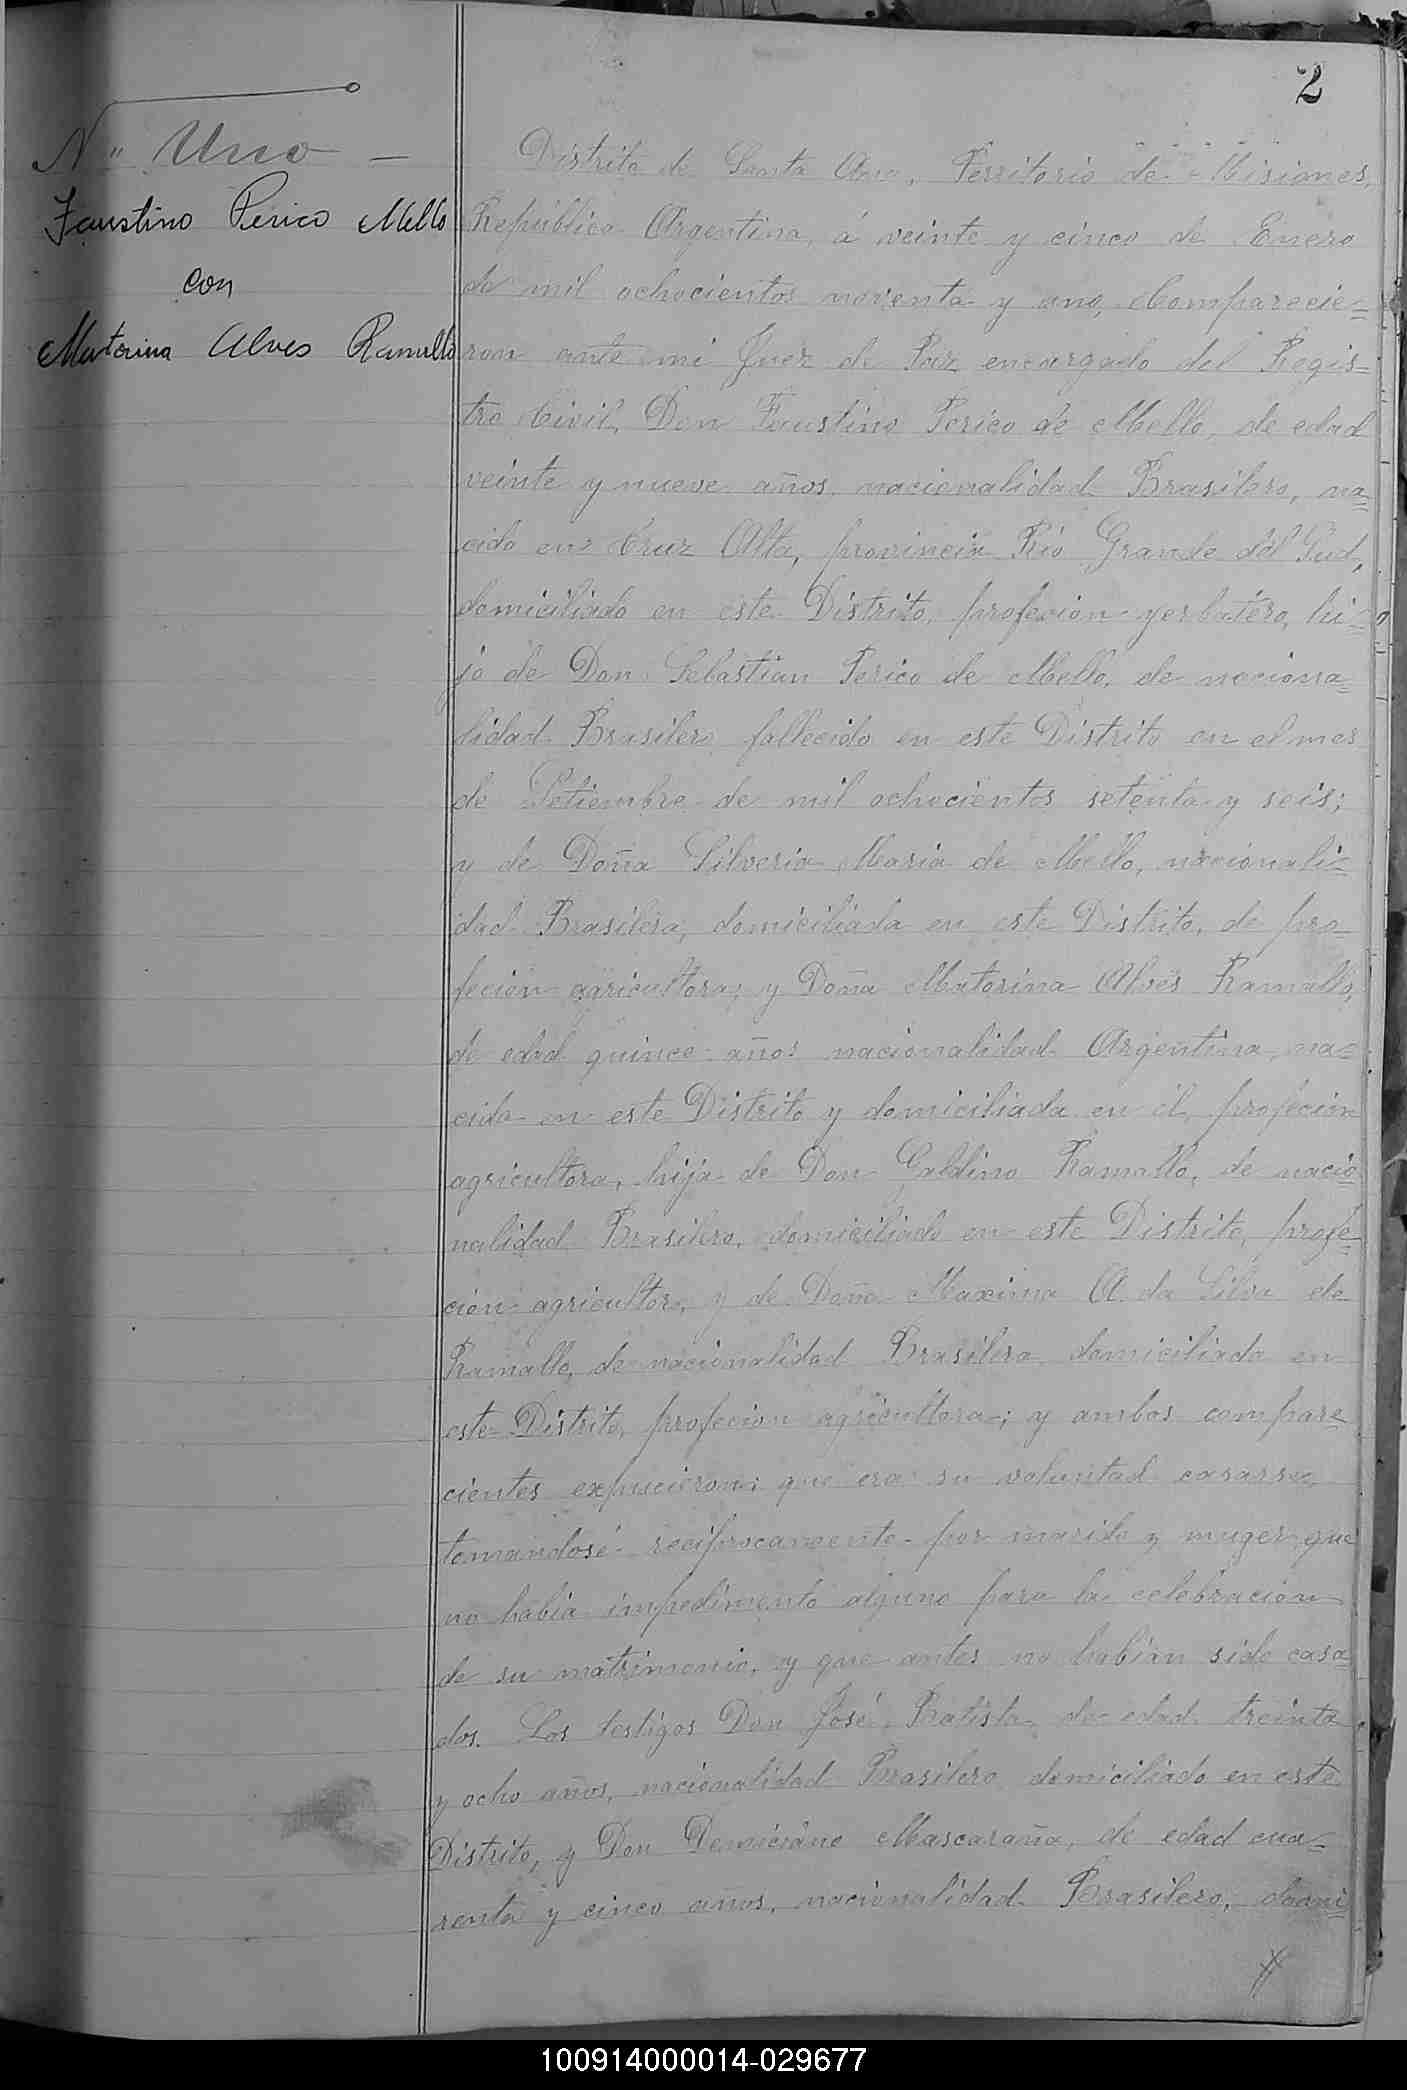 2
N" Uno
Faustino Perico Mello
con
Matorina Alves Ramallo
Distrito de Santa Ana, Territorio de Misiones,
República Argentina, á veinte y cinco de Enero
de mil ochocientos noventa y uno, Comparecie=
ron ante mi Juez de Paz encargado del Regis=
tro Civil, Don Faustino Perico de Mello, de edad
veinte y nueve años, nacionalidad Brasilero, na=
cido en Cruz Alta, provincia Rio Grande del Sud,
domiciliado en este Distrito, profecion yerbatero, hi=
jo de Don Sebastian Perico de Mello, de naciona=
lidad Brasilero fallecido en este Distrito en el mes
de Setiembre de mil ochocientos setenta y seis;
y de Doña Silveria Maria de Mello, nacionali=
dad Brasilera, domiciliada en este Distrito, de pro=
fecion agricultora; y Doña Matorina Alves Ramallo,
de edad quince años nacionalidad Argentina, na=
cida en este Distrito y domiciliada en él, profecion
agricultora, hija de Don Galdino Ramallo, de nacio=
nalidad Brasilero, domiciliado en este Distrito, profe=
cion agricultor, y de Doña Maxima A. da Silva de
Ramallo, de nacionalidad Brasilera domiciliada en
este Distrito, profecion agricultora; y ambos compare=
cientes expucieron: que era su voluntad casarse,
tomandosé reciprocamente por marido y muger, que
no habia impedimento alguno para la celebracion
de su matrimonio, y que antes no habian sido casa=
dos. Los testigos Don José Batista, de edad treinta
y ocho años, nacionalidad Brasilero domiciliado en este
Distrito, y Don Demiciano Mascaraña, de edad cua=
renta y cinco años, nacionalidad Brasilero, domi=
100914000014-029677